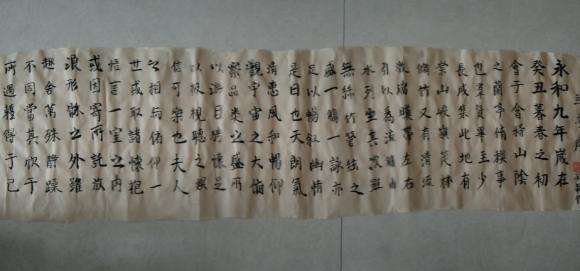 永和九年歲在
癸丑暮春之初
會于會稽山陰
之蘭亭脩禊事
也羣賢畢至少
長咸集此地有
崇山峻嶺茂林
脩竹又有清流
激湍暎帶左右
引以為流觴曲
水列坐其次雖
無絲竹管絃之
盛一觴一詠亦
足以暢敘幽情
是日也天朗氣
清惠風和暢仰
觀宇宙之大俯
察品類之盛所
以遊目騁懷足
以極視聽之娛
信可樂也夫人
之相與俯仰一
世或取諸懷抱
悟言一室之內
或因寄所託放
浪形骸之外雖
趣舍萬殊靜躁
不同當其欣于
所遇暫得于己